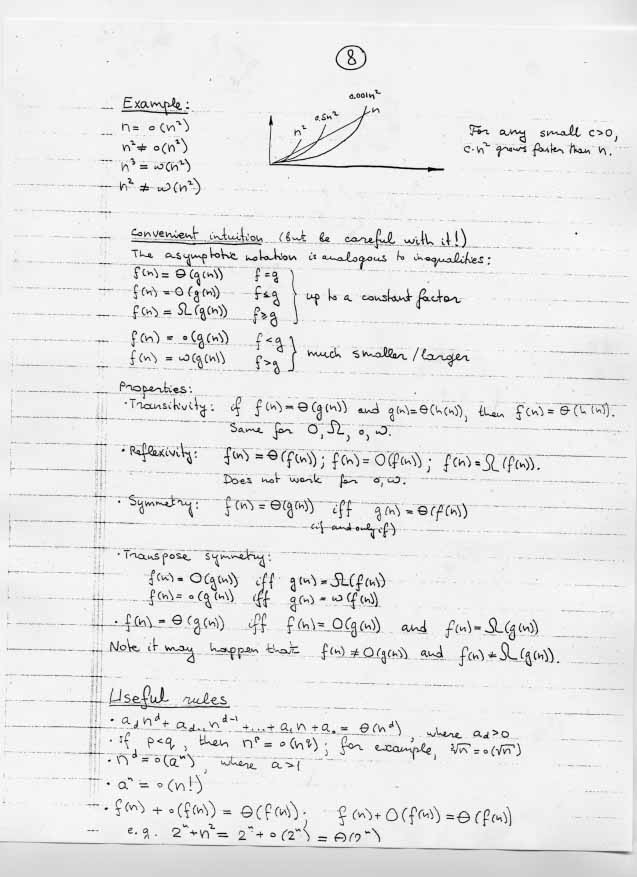 8
Example:
n = o(n²)
n² ≠ o(n²)
n³ = ω(n²)
n² ≠ ω(n²)
n²
0.5n²
0.001n²
n
For any small c>0,
c·n² grows faster than n.
Convenient intuition (but be careful with it!)
The asymptotic notation is analogous to inequalities:
f(n) = Θ(g(n)) f=g
f(n) = O(g(n)) f≤g
f(n) = Ω(g(n)) f≥g
up to a constant factor
f(n) = o(g(n)) f<g
f(n) = ω(g(n)) f>g
much smaller/larger
Properties:
·Transitivity: if f(n)=Θ(g(n)) and g(n)=Θ(h(n)), then f(n)=Θ(h(n)).
Same for O, Ω, o, ω.
·Reflexivity: f(n)=Θ(f(n)); f(n)=O(f(n)); f(n)=Ω(f(n)).
Does not work for o, ω.
· Symmetry: f(n)=Θ(g(n)) iff g(n)=Θ(f(n))
(if and only if)
·Transpose symmetry:
f(n)=O(g(n)) iff g(n)=Ω(f(n))
f(n)=o(g(n)) iff g(n)=ω(f(n))
· f(n)=Θ(g(n)) iff f(n)=O(g(n)) and f(n)=Ω(g(n))
Note it may happen that f(n)≠O(g(n)) and f(n)≠Ω(g(n)).
Useful rules
· a_d n^d + a_{d-1} n^{d-1} + ... + a₁n + a₀ = Θ(n^d), where a_d>0
· if p<q, then n^p = o(n^q); for example, ∛n = o(√n)
· n^d = o(a^n), where a>1
· a^n = o(n!)
· f(n) + o(f(n)) = Θ(f(n)); f(n)+O(f(n))=Θ(f(n))
e.g. 2^n+n² = 2^n+o(2^n) = Θ(2^n)